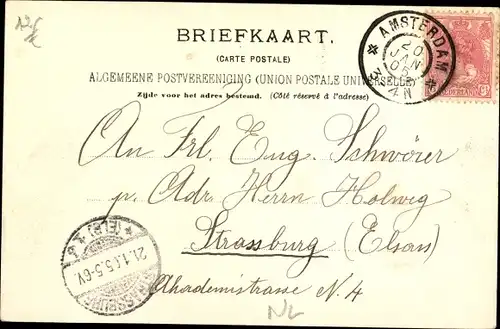 BRIEFKAART.
(CARTE POSTALE)
ALGEMEENE POSTVEREENIGING (UNION POSTALE UNIVERSELLE)
Zijde voor het adres bestemd. (Côté réservé à l'adresse)
AMSTERDAM
20
JAN
4N
An Frl. Eug. Schwörer
p. Adr. Herrn Holwig
Strassburg (Elsass)
Akademistrasse N. 4
(ELS)
21.1.05.5-6V.
NL